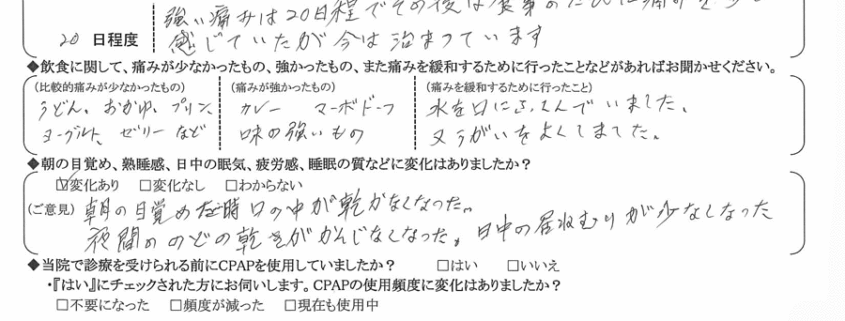 強い痛みは20日程でその後は食事のたびに痛みを少し
20 日程度 感じていたが今は治まっています
◆飲食に関して、痛みが少なかったもの、強かったもの、また痛みを緩和するために行ったことなどがあればお聞かせください。
(比較的痛みが少なかったもの) (痛みが強かったもの) (痛みを緩和するために行ったこと)
うどん、おかゆ、プリン、 カレー マーボドーフ 水を口にふくんでいました、
ヨーグルト、ゼリーなど 味の強いもの 又うがいをよくしてました。
◆朝の目覚め、熟睡感、日中の眠気、疲労感、睡眠の質などに変化はありましたか?
☑変化あり □変化なし □わからない
(ご意見) 朝の目覚めた時口の中が乾かなくなった。
夜間ののどの乾きがかんじなくなった。日中の居ねむりが少なくなった
◆当院で診療を受けられる前にCPAPを使用していましたか? □はい □いいえ
・『はい』にチェックされた方にお伺いします。CPAPの使用頻度に変化はありましたか?
□不要になった □頻度が減った □現在も使用中